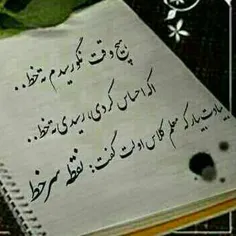 هیچ وقت نگو رسیدم ته خط..
اگه احساس کردی، رسیدی ته خط..
بیادت بیار که معلم کلاس اولت گفت: نقطه سر خط